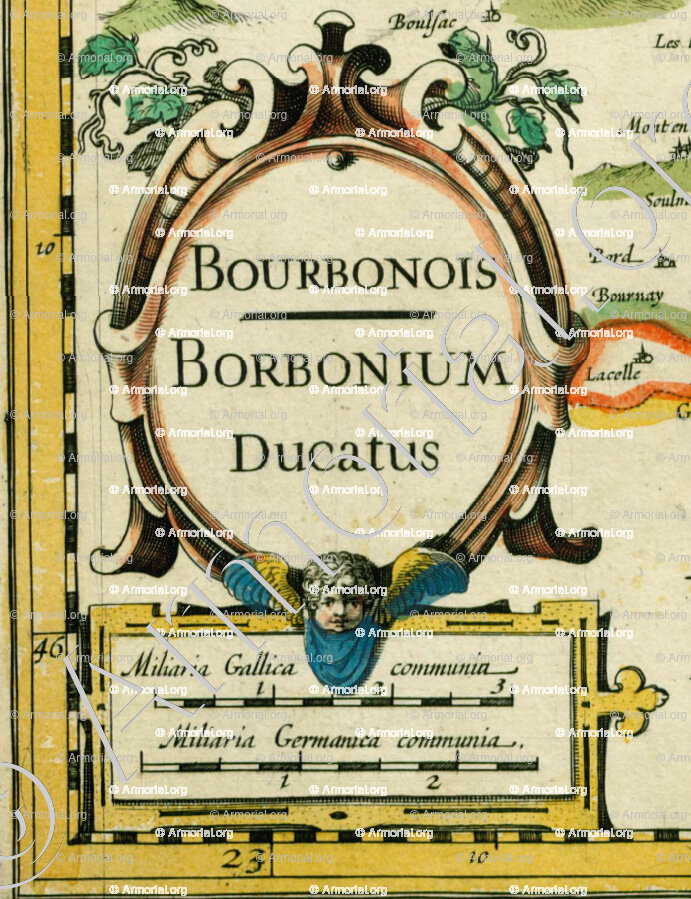 Boulsac
Les
Bourbonois
Borbonium
Ducatus
Bord
Bournay
Lacelle
10
46
Miliaria Gallica communia
1 2 3
Miliaria Germanica communia.
1 2
23
10
© Armorial.org